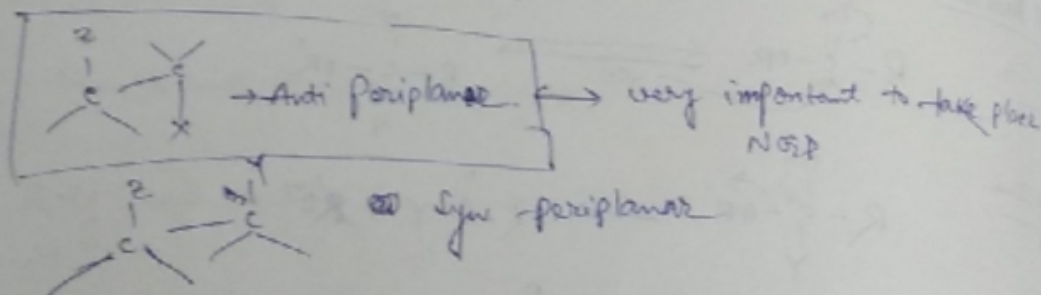 Z
C C
X
→ Anti Periplanar → very important to take place
NGP
Z X
C C
Syn-periplanar